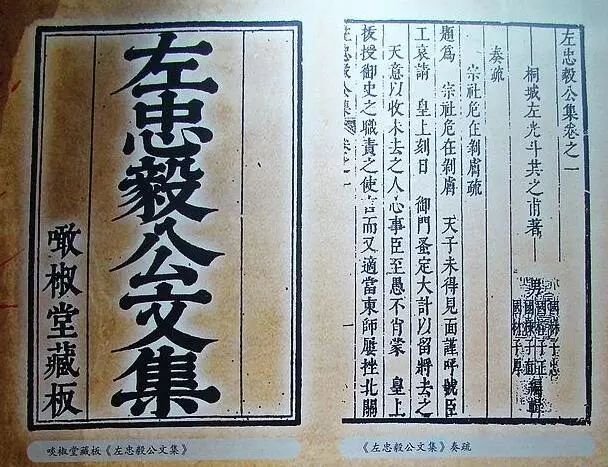 左忠毅公文集
噉椒堂藏板
左忠毅公集卷之一
桐城左光斗共之甫著
奏疏
宗社危在剥膚疏
題為 宗社危在剥膚 天子未得見面謹呼號臣
工哀請 皇上刻日 御門蚤定大計以留將去之
天意以收未去之人心事臣至愚不肖蒙 皇上
拔授御史之職責之使言而又適當東師屢挫北關
左忠毅公集 卷之一
啖椒堂藏板《左忠毅公文集》
《左忠毅公文集》奏疏